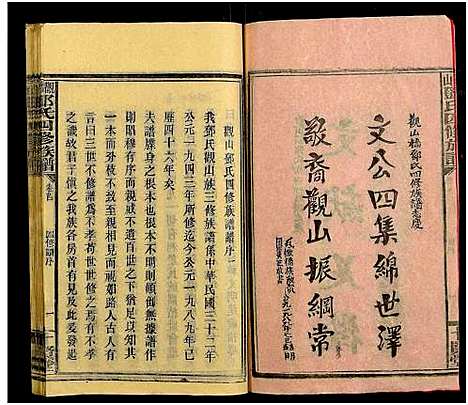 山鄧氏四修族譜
觀山橋鄧氏四修族譜志慶
文公四集綿世澤
啟裔觀山振綱常
觀山鄧氏四修族譜譜序
我鄧氏觀山族三修族譜係中華民國三十二年
即公元一九四三年所修迄今公元一九八九年已
歷四十六年矣
夫譜牒為之根本也根本傾御無據譜作
則昭穆有序而親戚不遺百世之下猶足以知其
一本而殊枝不致至親相見而視如路人古人
云三世不修譜為不孝苟世世修之焉有不孝
之議哉吾君干億及我族各房首有見及此爰發起
鄧氏四修族譜
卷首
四修譜序
一